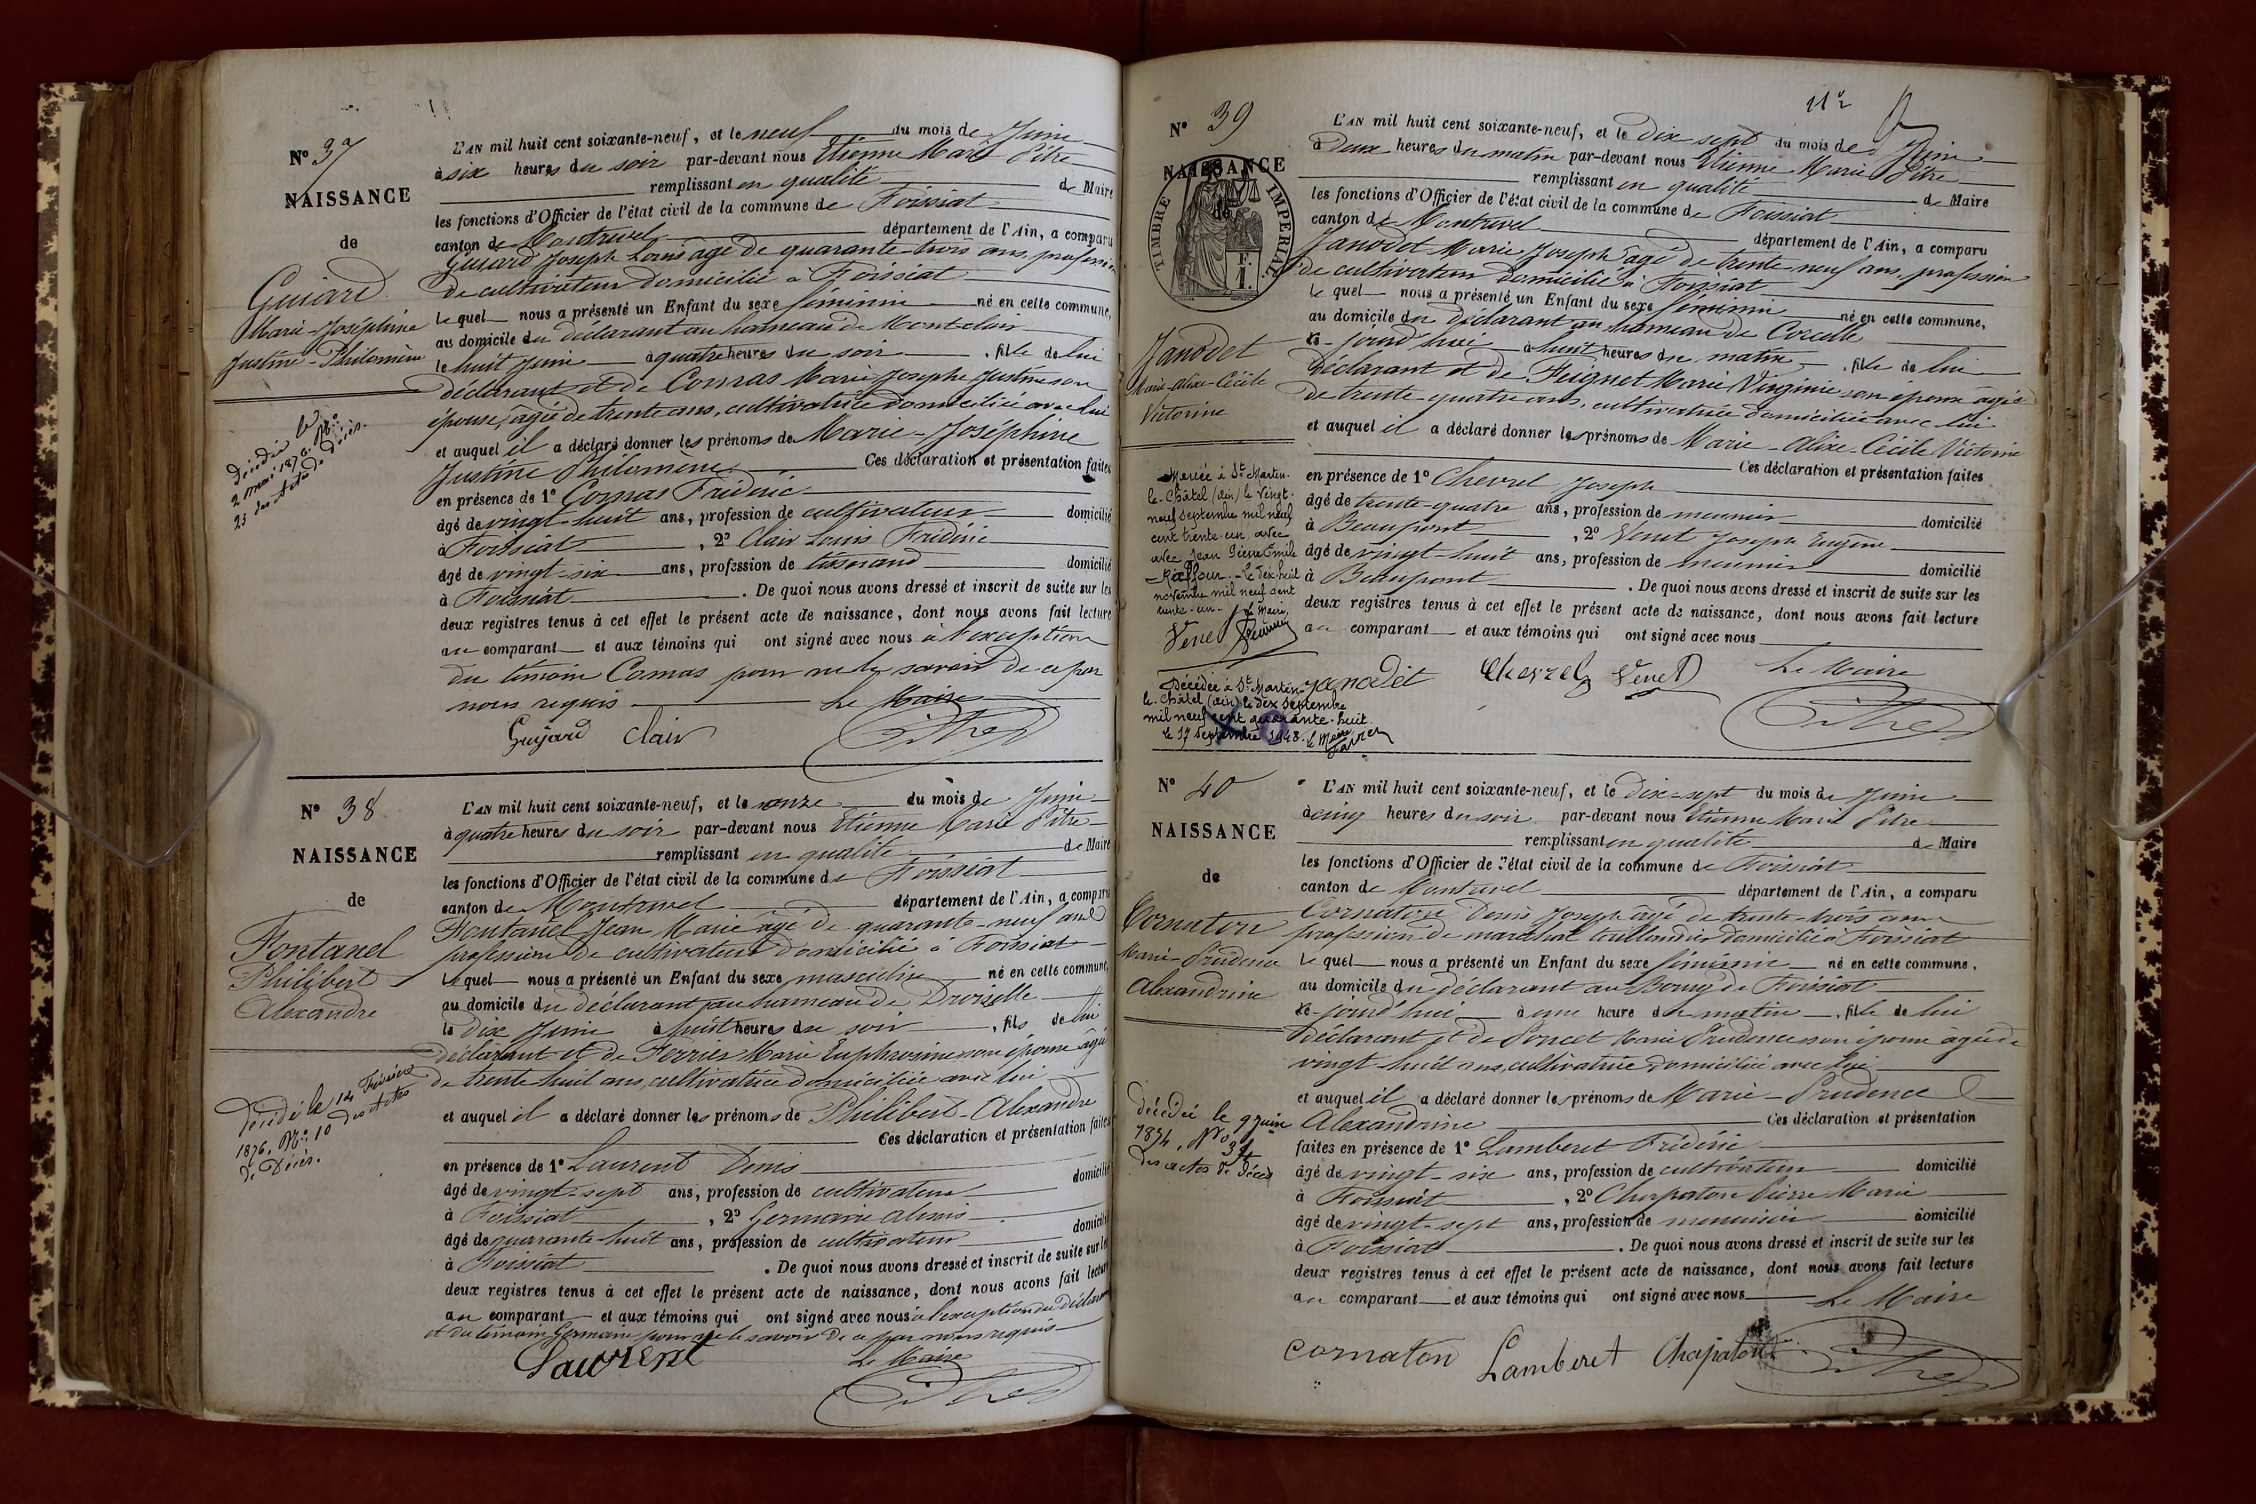 N° 37
NAISSANCE
de
Guiard
Marie-Joséphine
Justine-Philomène
Décédée le
2 mai 1876. N°
23 des actes de Décès.
L'AN mil huit cent soixante-neuf, et le neuf du mois de Juin
à six heures du soir par-devant nous Etienne Marie Pitre
remplissant en qualité de Maire
les fonctions d'Officier de l'état civil de la commune de Foissiat
canton de Montrevel département de l'Ain, a comparu
Guiard Joseph Louis âgé de quarante-trois ans, profession
de cultivateur domicilié à Foissiat
lequel nous a présenté un Enfant du sexe féminin né en cette commune,
au domicile du déclarant au hameau de Montclair
le huit Juin à quatre heures du soir, fille de lui
déclarant et de Comas Marie Josephe Justine son
épouse, âgée de trente ans, cultivatrice domiciliée avec lui
et auquel il a déclaré donner les prénoms de Marie-Joséphine
Justine Philomène Ces déclaration et présentation faites
en présence de 1° Comas Frédéric
âgé de vingt-huit ans, profession de cultivateur domicilié
à Foissiat, 2° Clair Louis Frédéric
âgé de vingt-six ans, profession de tisserand domicilié
à Foissiat. De quoi nous avons dressé et inscrit de suite sur les
deux registres tenus à cet effet le présent acte de naissance, dont nous avons fait lecture
au comparant et aux témoins qui ont signé avec nous à l'exception
du témoin Comas pour ne le savoir de ce par
nous requis Le Maire
Guiard Clair Pitre
N° 38
NAISSANCE
de
Fontanel
Philibert
Alexandre
Décédé le 14 Février
1876, N° 10 des actes
de Décès.
L'AN mil huit cent soixante-neuf, et le onze du mois de Juin
à quatre heures du soir par-devant nous Etienne Marie Pitre
remplissant en qualité de Maire
les fonctions d'Officier de l'état civil de la commune de Foissiat
canton de Montrevel département de l'Ain, a comparu
Fontanel Jean Marie âgé de quarante-neuf ans
profession de cultivateur domicilié à Foissiat
lequel nous a présenté un Enfant du sexe masculin né en cette commune,
au domicile du déclarant au hameau de Droiselle
le dix Juin à huit heures du soir, fils de lui
déclarant et de Ferrier Marie Euphrosine son épouse âgée
de trente huit ans, cultivatrice domiciliée avec lui
et auquel il a déclaré donner les prénoms de Philibert-Alexandre
Ces déclaration et présentation faites
en présence de 1° Laurent Denis
âgé de vingt-sept ans, profession de cultivateur domicilié
à Foissiat, 2° Germain Alexis
âgé de quarante-huit ans, profession de cultivateur domicilié
à Foissiat. De quoi nous avons dressé et inscrit de suite sur les
deux registres tenus à cet effet le présent acte de naissance, dont nous avons fait lecture
au comparant et aux témoins qui ont signé avec nous à l'exception du déclarant
et du témoin Germain pour ne le savoir de ce par nous requis
Laurent Le Maire
Pitre
N° 39
NAISSANCE
de
TIMBRE IMPERIAL
1 F.
Janodet
Marie-Alix-Cécile
Victorine
Mariée à St Martin-
le-Châtel (Ain) le vingt-
neuf septembre mil neuf
cent trente-un avec
avec Jean Pierre Emile
le dix-huit
novembre mil neuf cent
trente-un. Le Maire
Venet
Décédée à St Martin-
le-Châtel (Ain) le dix septembre
mil neuf cent quarante-huit
le 17 septembre 1948. le Maire
L'AN mil huit cent soixante-neuf, et le dix sept du mois de Juin
à Deux heures du matin par-devant nous Etienne Marie Pitre
remplissant en qualité de Maire
les fonctions d'Officier de l'état civil de la commune de Foissiat
canton de Montrevel département de l'Ain, a comparu
Janodet Marie Joseph âgé de trente-neuf ans, profession
de cultivateur domicilié à Foissiat
lequel nous a présenté un Enfant du sexe féminin né en cette commune,
au domicile du déclarant au hameau de Cocelle
jourd'hui à huit heures du matin, fille de lui
déclarant et de Feignet Marie Virginie son épouse âgée
de trente-quatre ans, cultivatrice domiciliée avec lui
et auquel il a déclaré donner les prénoms de Marie-Alix-Cécile Victorine
Ces déclaration et présentation faites
en présence de 1° Chevrel Joseph
âgé de trente-quatre ans, profession de meunier domicilié
à Beaupont, 2° Venet Joseph Eugène
âgé de vingt-huit ans, profession de meunier domicilié
à Beaupont. De quoi nous avons dressé et inscrit de suite sur les
deux registres tenus à cet effet le présent acte de naissance, dont nous avons fait lecture
au comparant et aux témoins qui ont signé avec nous
Janodet Chevrel Venet Le Maire
Pitre
N° 40
NAISSANCE
de
Cornaton
Marie-Prudence
Alexandrine
Décédée le 9 juin
1874, N° 31
des actes de décès
L'AN mil huit cent soixante-neuf, et le dix-sept du mois de Juin
à cinq heures du soir par-devant nous Etienne Marie Pitre
remplissant en qualité de Maire
les fonctions d'Officier de l'état civil de la commune de Foissiat
canton de Montrevel département de l'Ain, a comparu
Cornaton Denis Joseph âgé de trente-trois ans
profession de maréchal taillandier domicilié à Foissiat
lequel nous a présenté un Enfant du sexe féminin né en cette commune,
au domicile du déclarant au Bourg de Foissiat
jourd'hui à une heure du matin, fille de lui
déclarant et de Poncet Marie Prudence son épouse âgée de
vingt huit ans, cultivatrice domiciliée avec lui
et auquel il a déclaré donner les prénoms de Marie-Prudence
Alexandrine Ces déclaration et présentation
faites en présence de 1° Lamberet Frédéric
âgé de vingt-six ans, profession de cultivateur domicilié
à Foissiat, 2° Chapaton Pierre Marie
âgé de vingt-sept ans, profession de menuisier domicilié
à Foissiat. De quoi nous avons dressé et inscrit de suite sur les
deux registres tenus à cet effet le présent acte de naissance, dont nous avons fait lecture
au comparant et aux témoins qui ont signé avec nous Le Maire
Cornaton Lamberet Chapaton Pitre